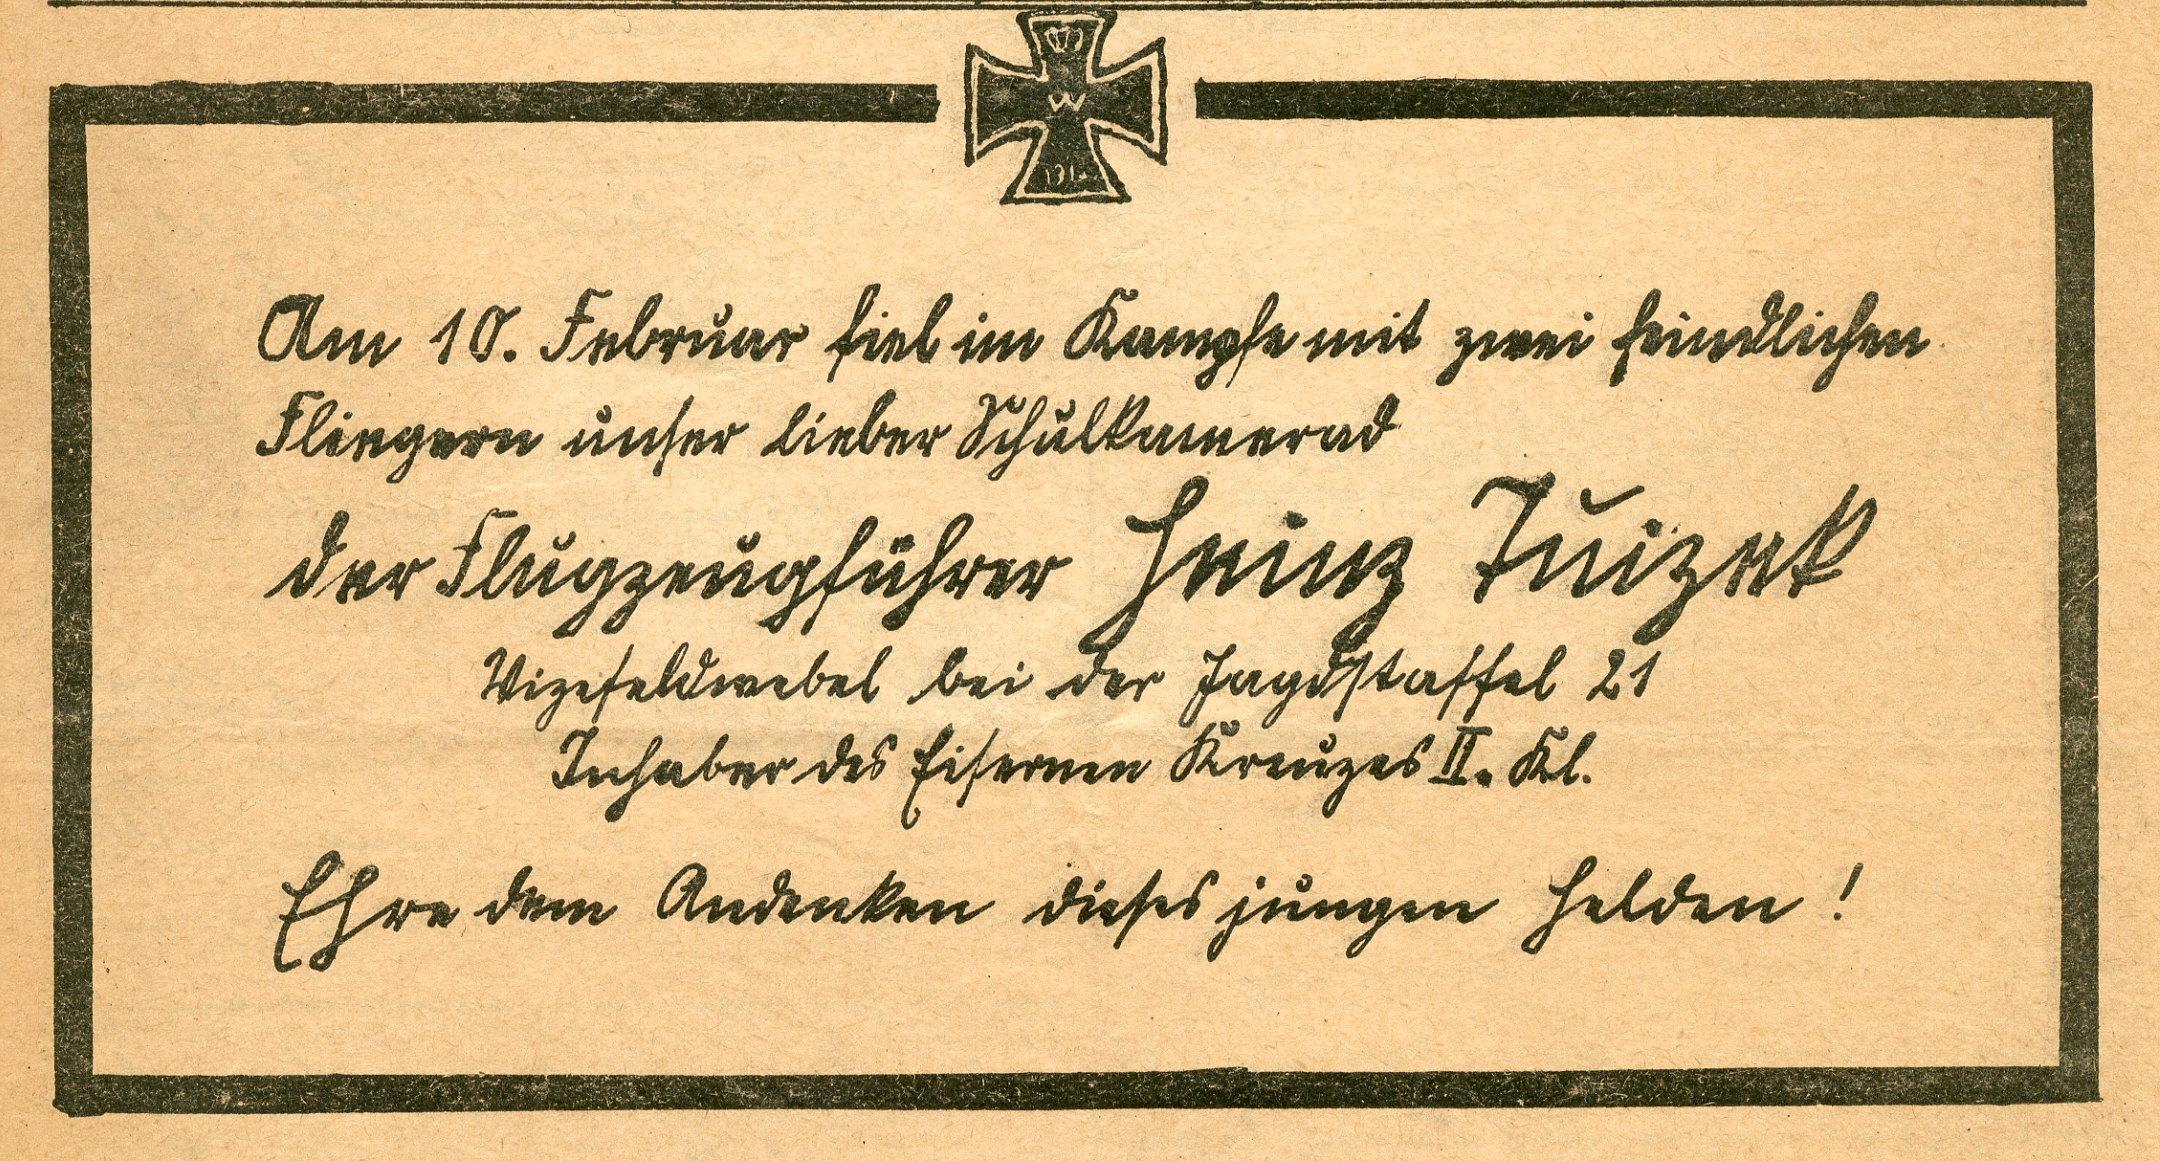 W
Am 10. Februar fiel im Kampfe mit zwei feindlichen
Fliegern unser lieber Schulkamerad
der Flugzeugführer Heinz Tuizek
Vizefeldwebel bei der Jagdstaffel 21
Inhaber des Eisernen Kreuzes II. Kl.
Ehre dem Andenken dieses jungen Helden !